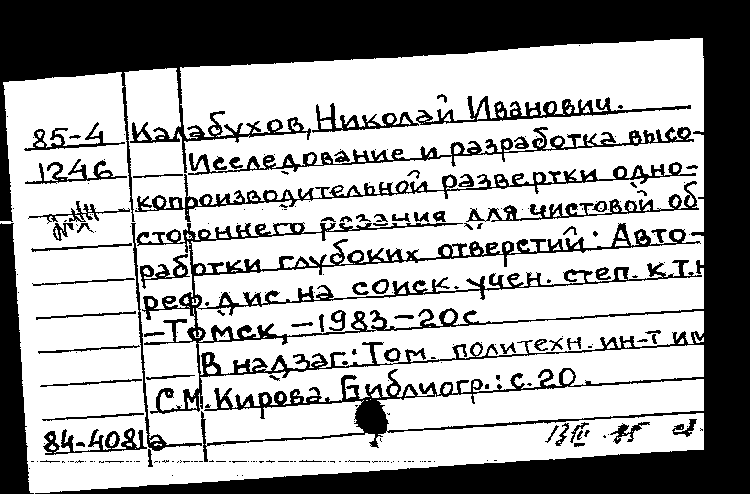 85-4 Калабухов, Николай Иванович.
1246 Исследование и разработка высо-
копроизводительной развертки одно-
стороннего резания для чистовой об-
работки глубоких отверстий: Авто-
реф. дис. на соиск. учен. степ. к.т.н
–Томск, –1983.–20с
В надзаг.: Том. политехн. ин-т им
С.М.Кирова. Библиогр.: с. 20.
84-4081а